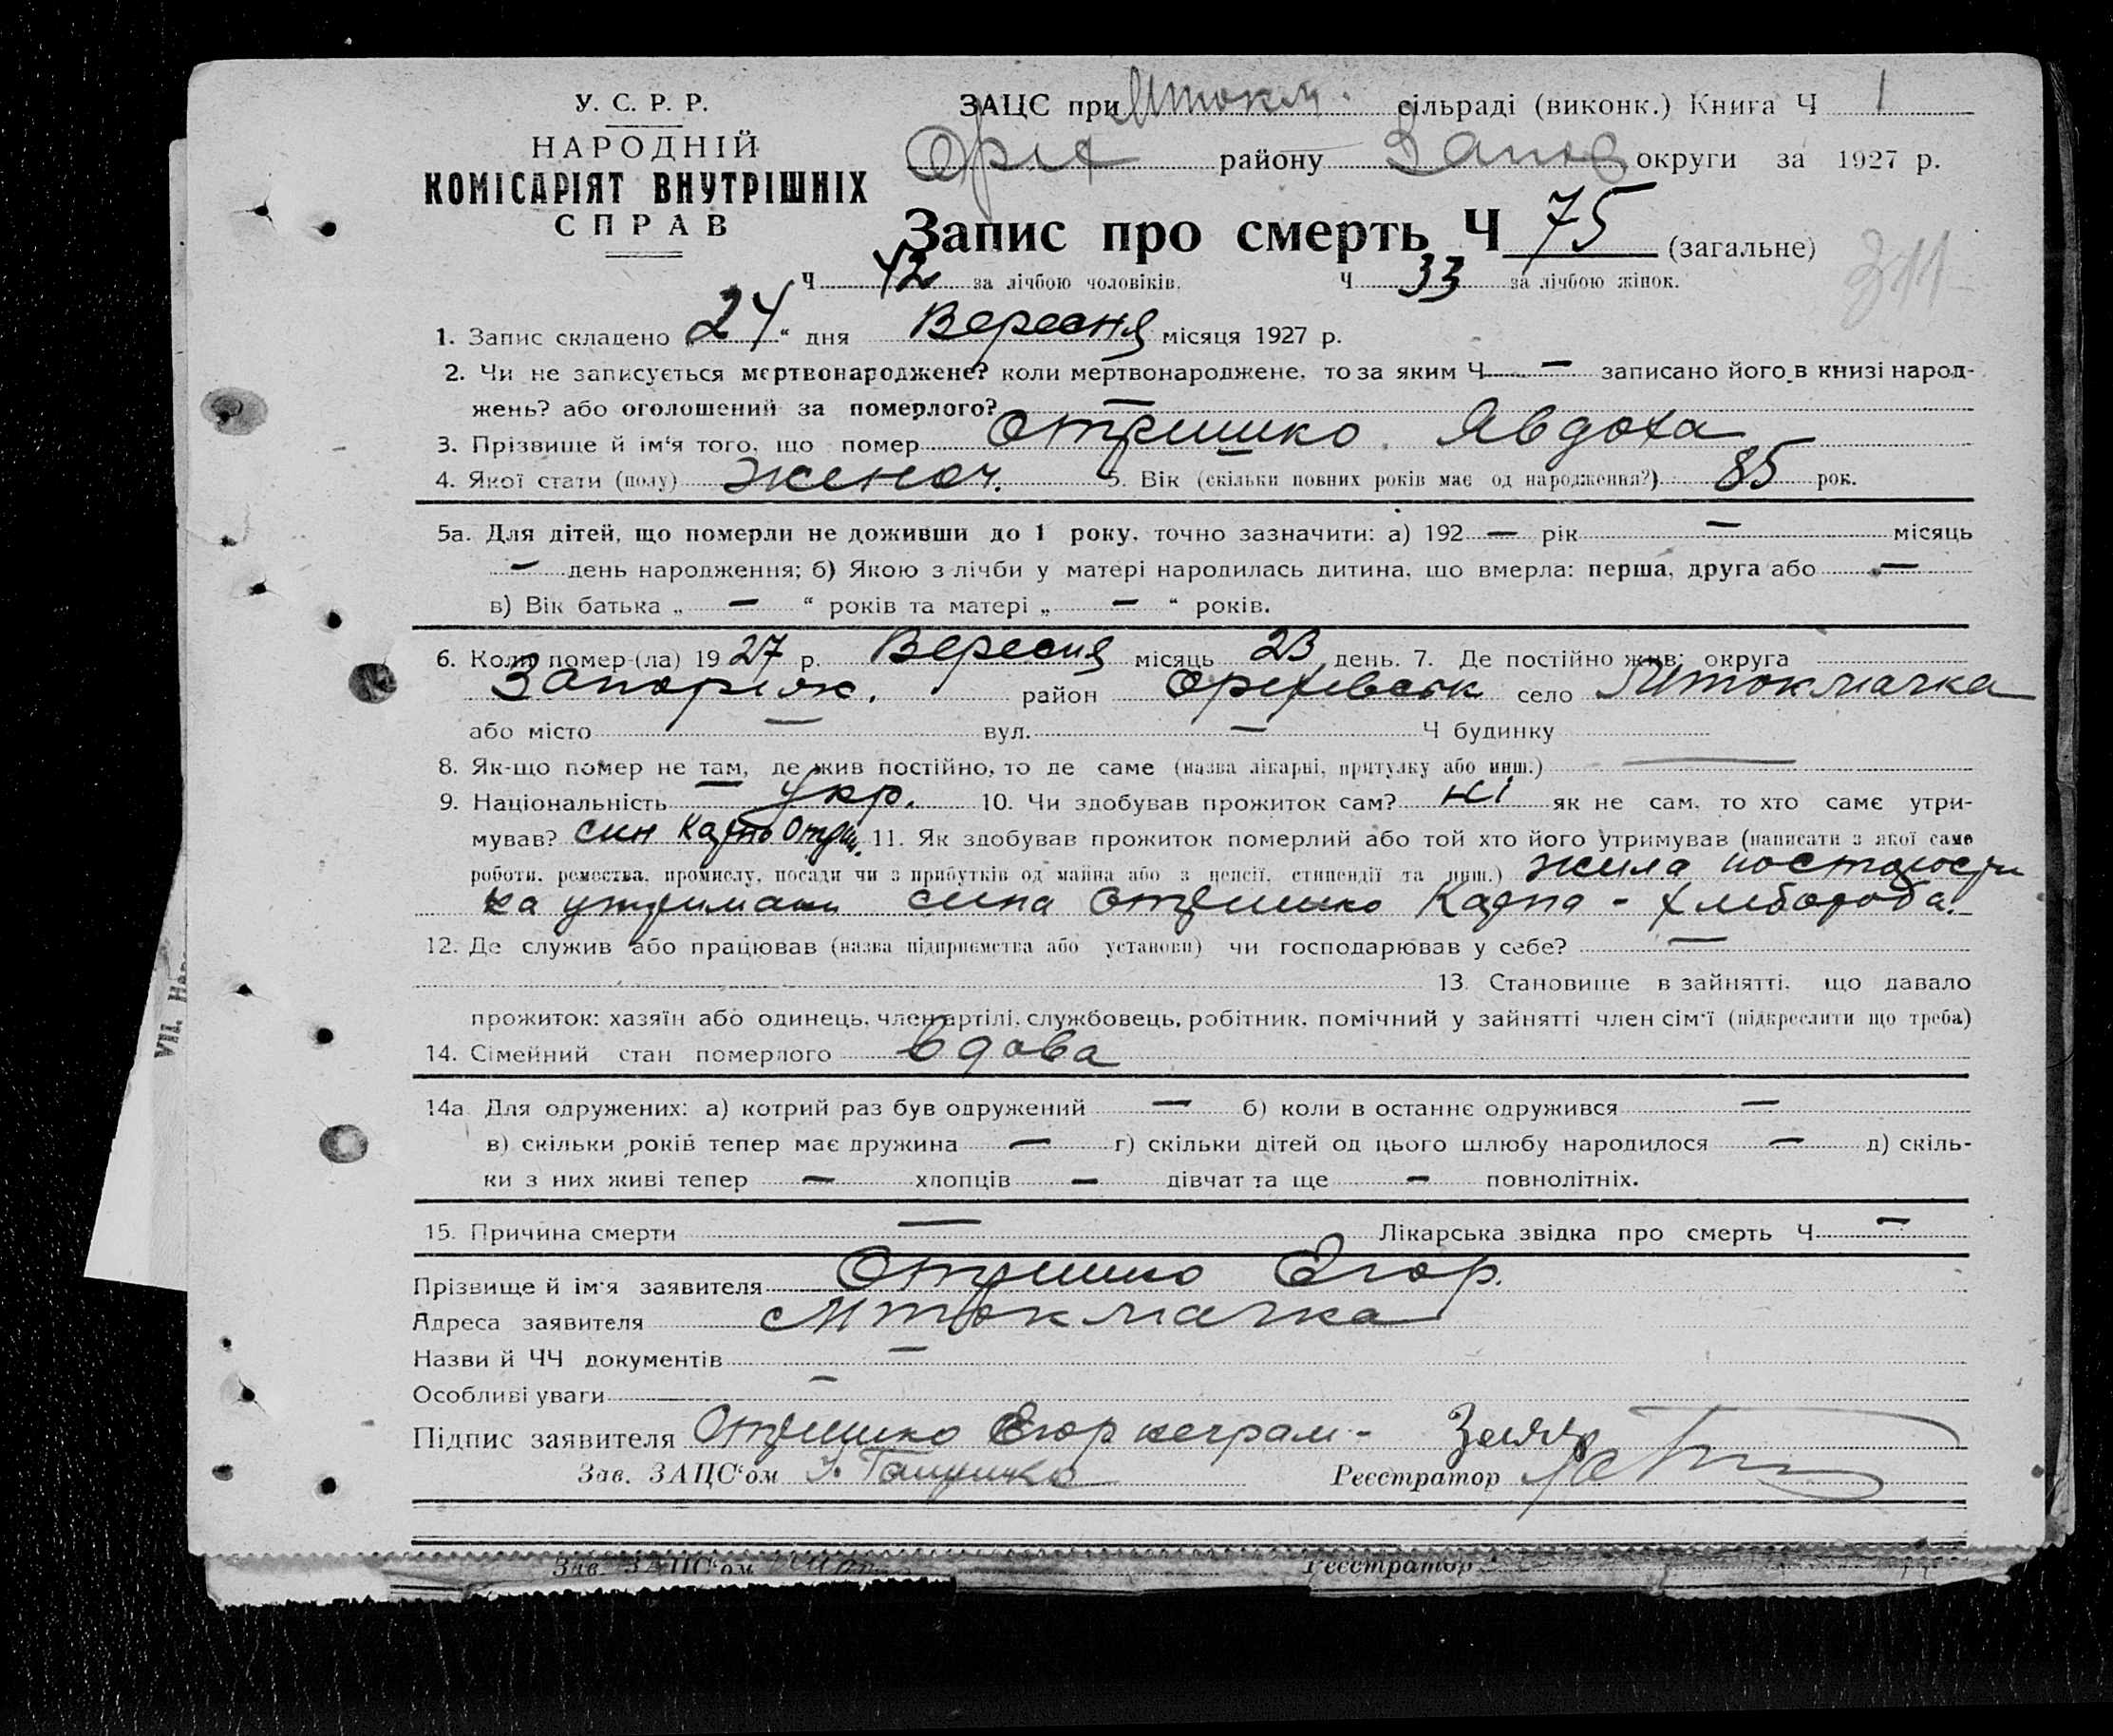 У. С. Р. Р.
НАРОДНІЙ
КОМІСАРІЯТ ВНУТРІШНІХ
СПРАВ
ЗАЦС при Мток. сільраді (виконк.) Книга Ч 1
Оріх району Запор округи за 1927 р.
Запис про смерть Ч 75 (загальне)
311
Ч 42 за лічбою чоловіків. Ч 33 за лічбою жінок.
1. Запис складено „24“ дня Вересня місяця 1927 р.
2. Чи не записується мертвонароджене? коли мертвонароджене, то за яким Ч — записано його в книзі народ-
жень? або оголошений за померлого? —
3. Прізвище й ім‘я того, що помер Отришко Явдоха
4. Якої стати (полу) женоч. 5. Вік (скільки повних років має од народження?) 85 рок.
5а. Для дітей, що померли не доживши до 1 року, точно зазначити: а) 192 — рік — місяць
— день народження; б) Якою з лічби у матері народилась дитина, що вмерла: перша, друга або —
в) Вік батька „ — “ років та матері „ — “ років.
6. Коли помер-(ла) 1927 р. Вересня місяць 23 день. 7. Де постійно жив: округа
Запоріж. район Оріхівськ село Мтокмачка
або місто — вул. — Ч будинку
8. Як-що помер не там, де жив постійно, то де саме (назва лікарні, притулку або инш.) —
9. Національність укр. 10. Чи здобував прожиток сам? ні як не сам, то хто саме утри-
мував? син Карпо Отриш. 11. Як здобував прожиток померлий або той хто його утримував (написати з якої саме
роботи, ремества, промислу, посади чи з прибутків од майна або з пенсії, стипендії та инш.) жила
на утриман сина Отришко Карпа - хлібороба.
12. Де служив або працював (назва підприємства або установи) чи господарював у себе? —
13. Становище в зайнятті, що давало
прожиток: хазяїн або одинець, член артілі, службовець, робітник, помічний у зайнятті член сім‘ї (підкреслити що треба)
14. Сімейний стан померлого вдова
14а Для одружених: а) котрий раз був одружений — б) коли в останнє одружився —
в) скільки років тепер має дружина — г) скільки дітей од цього шлюбу народилося — д) скіль-
ки з них живі тепер — хлопців — дівчат та ще — повнолітніх.
15. Причина смерти — Лікарська звідка про смерть Ч —
Прізвище й ім‘я заявителя Отришко Егор.
Адреса заявителя Мтокмачка
Назви й ЧЧ документів —
Особливі уваги —
Підпис заявителя Отришко Егор неграм -
Зав. ЗАЦС‘ом Реєстратор
Зав. ЗАЦС‘ом Реєстратор
VII.